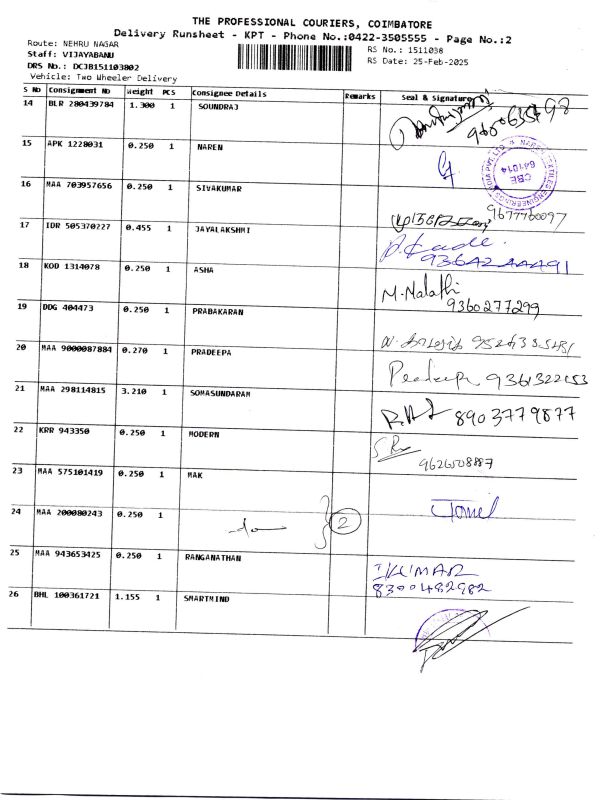 THE PROFESSIONAL COURIERS, COIMBATORE
Delivery Runsheet - KPT - Phone No.:0422-3505555 - Page No.:2
Route: NEHRU NAGAR
RS No.: 1511038
Staff: VIJAYABANU
RS Date: 25-Feb-2025
DRS No.: DCJB151103802
Vehicle: Two Wheeler Delivery
S No Consignment No Weight PCS Consignee Details Remarks Seal & Signature
14 BLR 280439784 1.300 1 SOUNDRAJ
15 APK 1228031 0.250 1 NAREN
CBE 641014
16 MAA 703957656 0.250 1 SIVAKUMAR
9677760097
17 IDR 505370227 0.455 1 JAYALAKSHMI
18 KOD 1314078 0.250 1 ASHA M.Malathi
9360277299
19 DDG 404473 0.250 1 PRABAKARAN
20 MAA 9000087884 0.270 1 PRADEEPA Pradeepa
21 MAA 298114815 3.210 1 SOMASUNDARAM 8903779877
22 KRR 943350 0.250 1 MODERN
23 MAA 575101419 0.250 1 MAK
24 MAA 200080243 0.250 1 2
25 MAA 943653425 0.250 1 RANGANATHAN KUMAR
8300482982
26 BHL 100361721 1.155 1 SMARTMIND